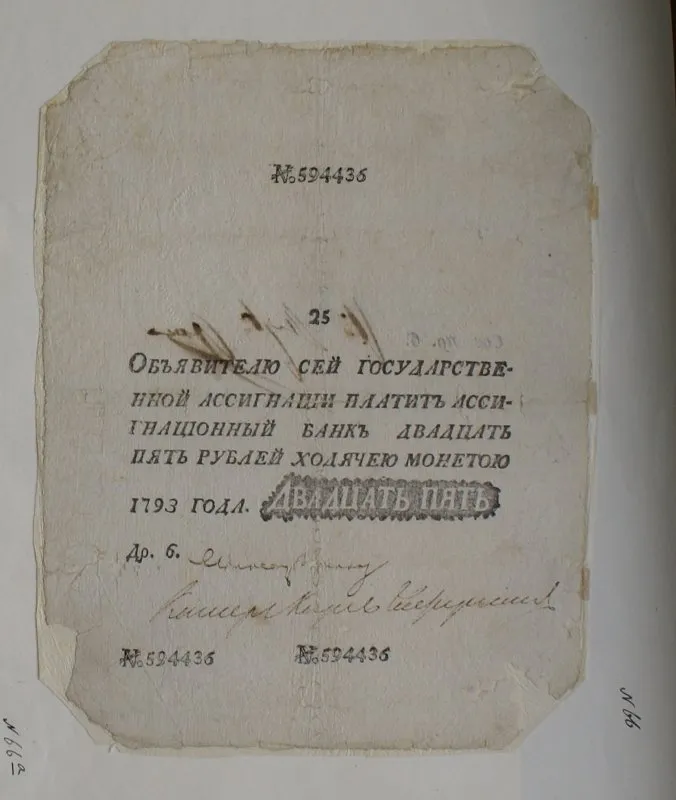 №594436
25
Объявителю сей государстве-
нной ассигнации платитъ асси-
гнационный банкъ двадцать
пять рублей ходячею монетою
1793 года. ДВАДЦАТЬ ПЯТЬ
Др. 6.
№594436 №594436
N 66
N 66a